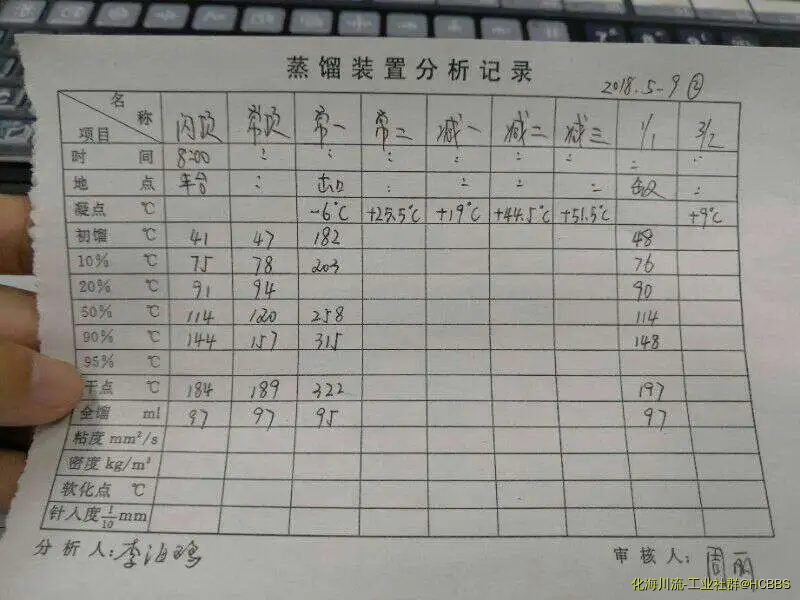 蒸馏装置分析记录
2018.5-9 ②
名称 项目 闪顶 常顶 常一 常二 减一 减二 减三 1/1 3/2
时间 8:00 : : : : : : : :
地点 : 出口 : : : : :
凝点 ℃ -6℃ +25.5℃ +19℃ +44.5℃ +51.5℃ +9℃
初馏 ℃ 41 47 182 48
10% ℃ 75 78 203 76
20% ℃ 91 94 90
50% ℃ 114 120 258 114
90% ℃ 144 157 315 148
95% ℃
干点 ℃ 184 189 322 197
全馏 ml 97 97 95 97
粘度 mm²/s
密度 kg/m³
软化点 ℃
针入度 1/10 mm
分析人:李海 审核人:周丽
化海川流-工业社群@HCBBS